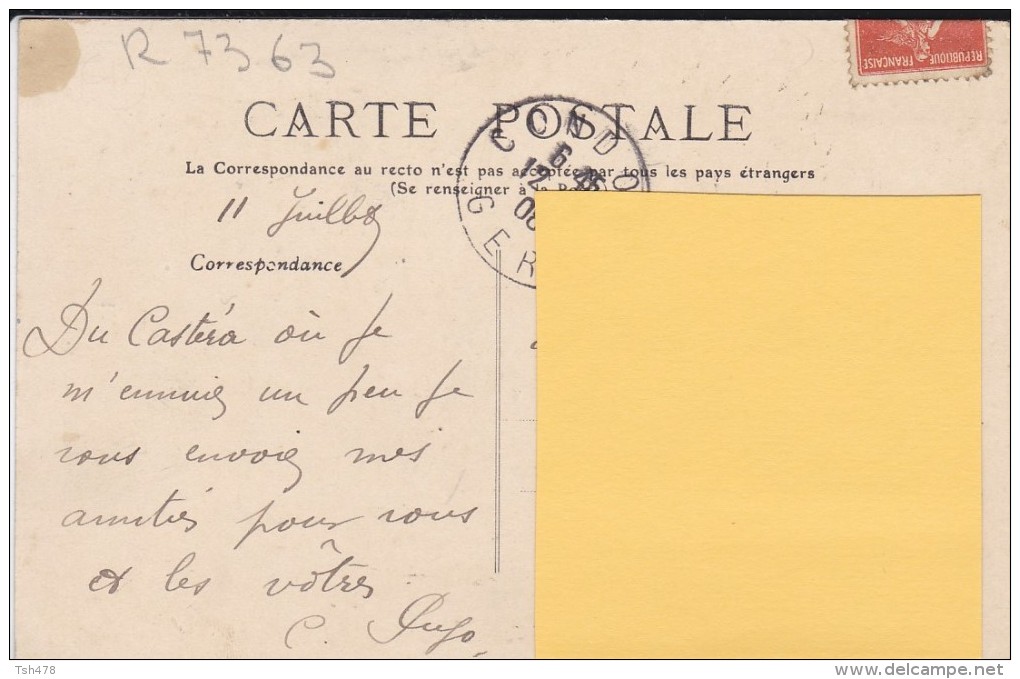 R 7363
REPUBLIQUE FRANCAISE
CARTE POSTALE
La Correspondance au recto n'est pas acceptée par tous les pays étrangers
(Se renseigner à la Poste)
CONDO
6 45
12
08
GER
11 Juillet
Correspondance
Du Castéra où je
m'ennuie un peu je
vous envoie mes
amitiés pour vous
et les vôtres
C.
Tsh478
www.delcampe.net